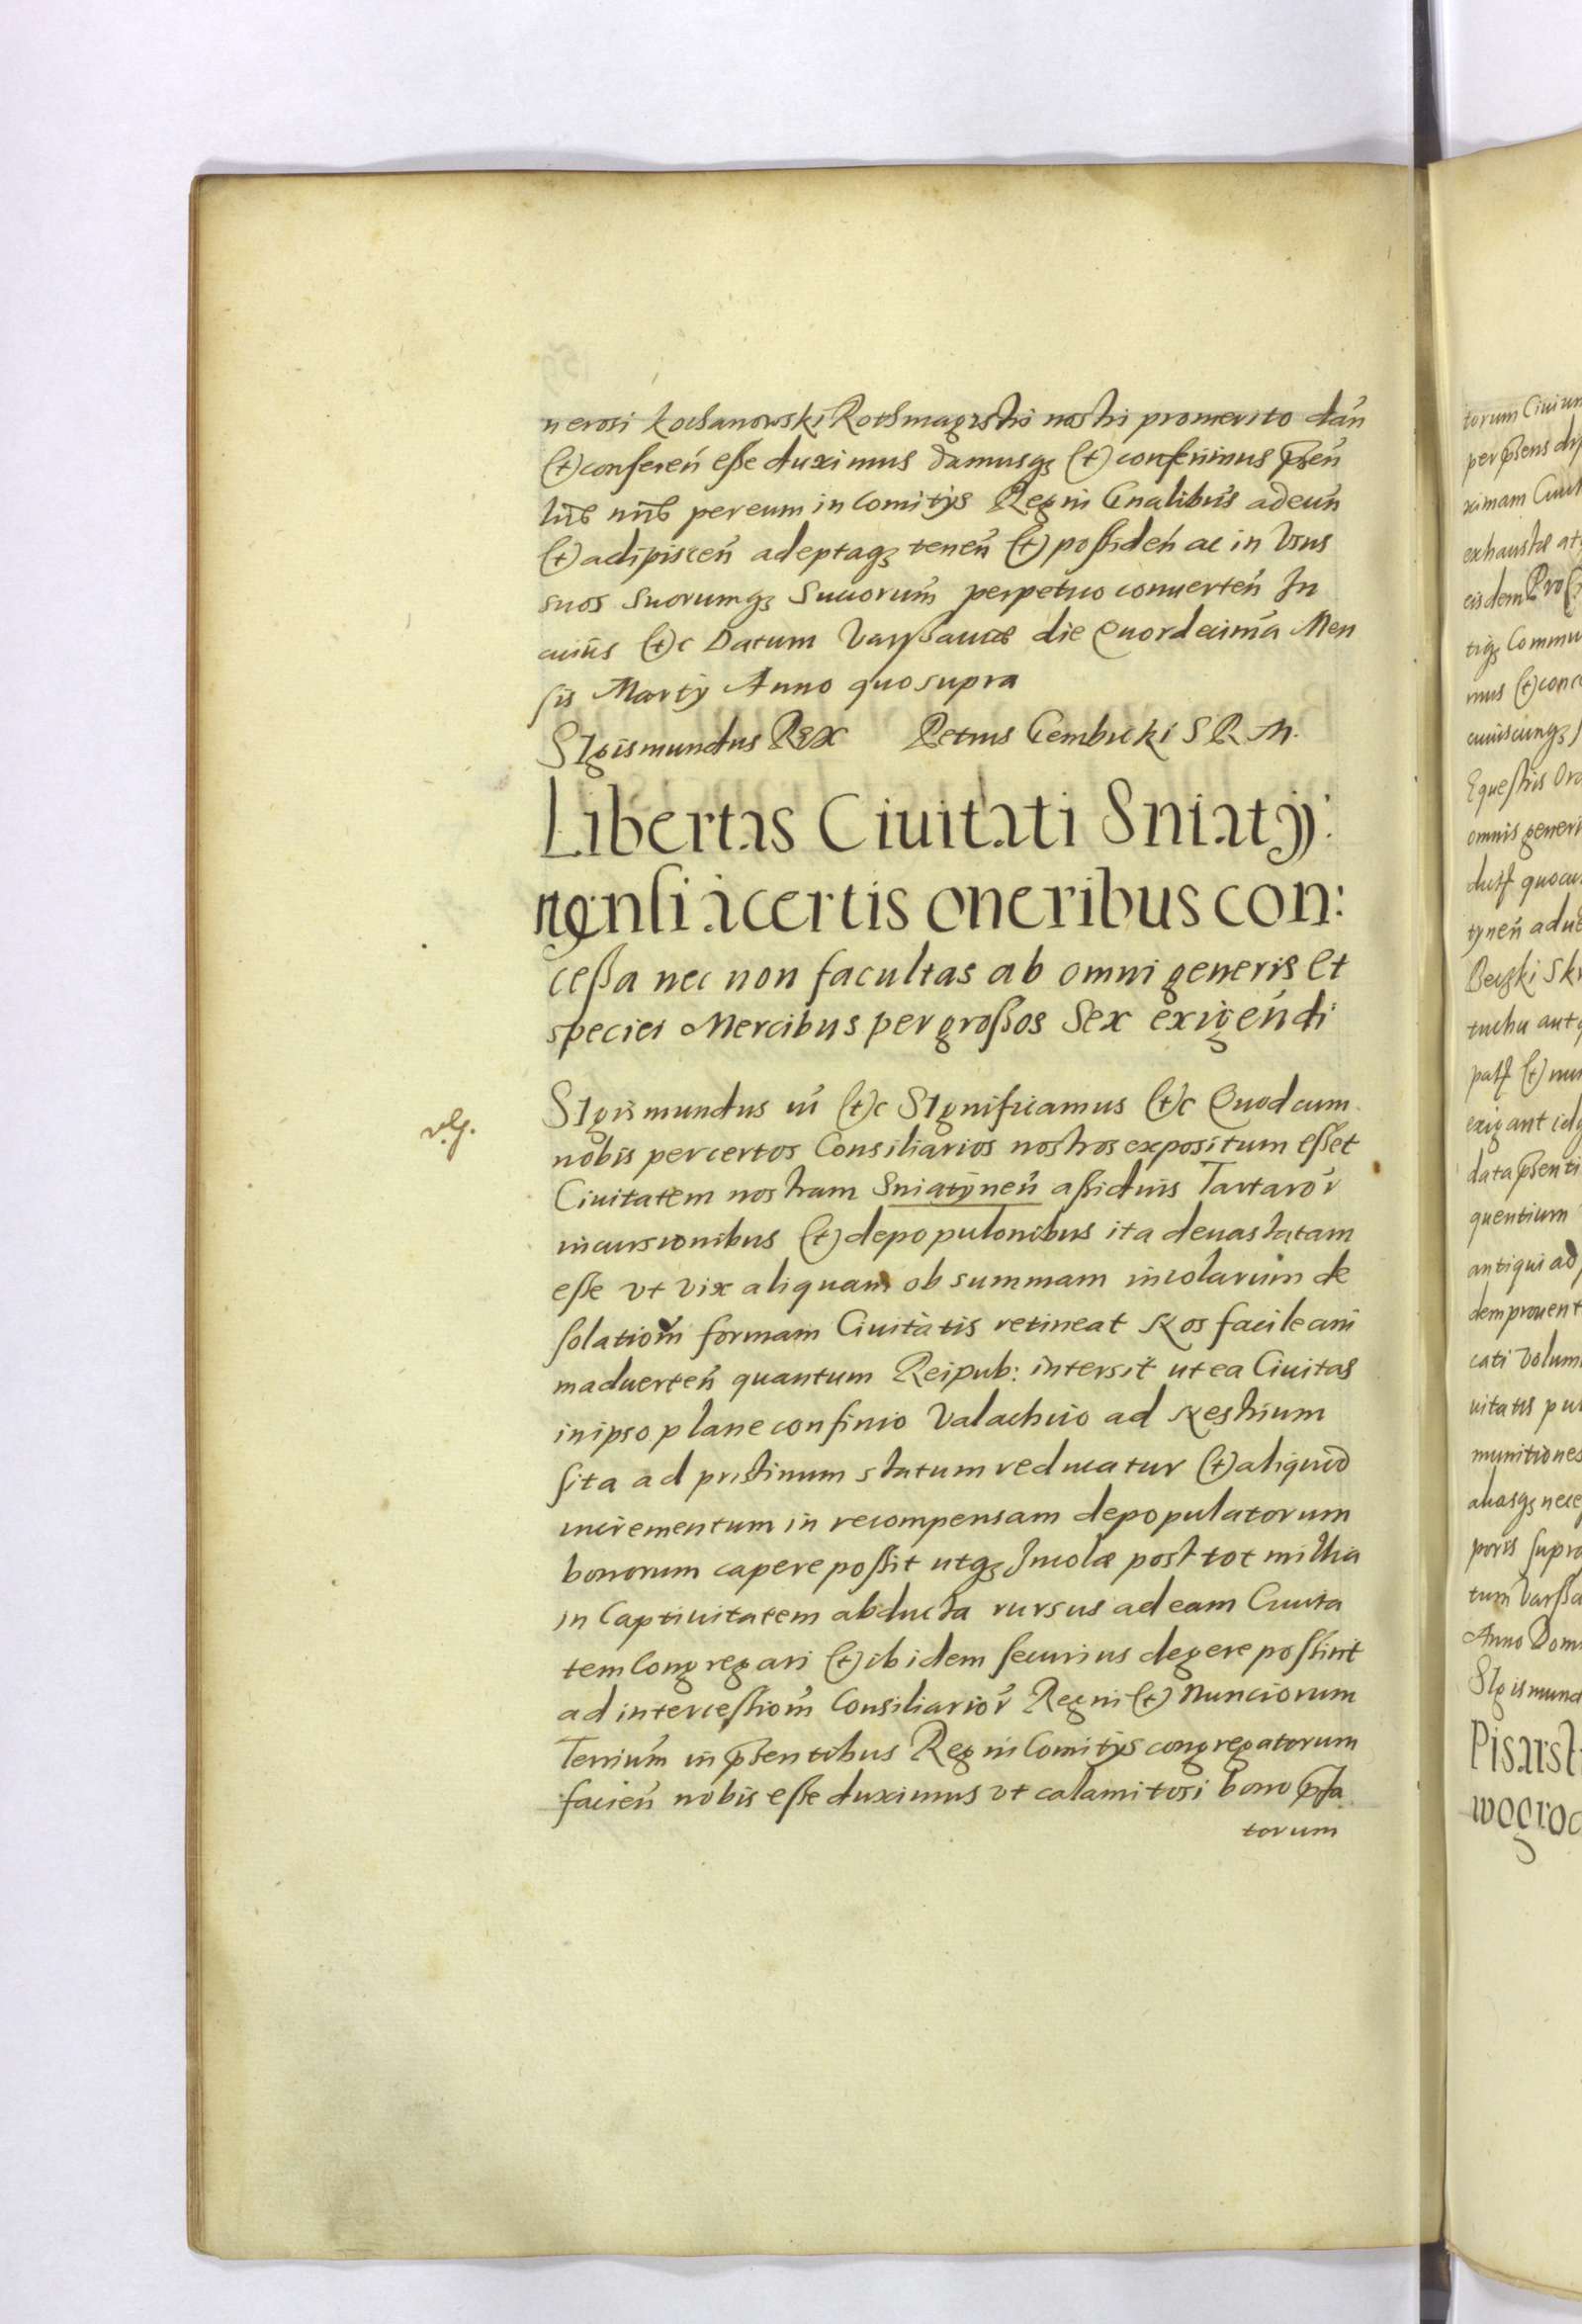 nerosi Kochanowski Rothmagistri nostri promerito dan̄
(et) conferen̄ esse duximus damusq3 (et) conferimus p̄sen̄
lrīs nrīs per eum in Comitijs Regni Gn̄alibus adeun̄
(et) adipiscen̄ adeptaq3 tenen̄ (et) possiden̄ ac in Vsus
suos suorumq3 Succorum̄ perpetuo conuerten̄ In
cuius (et)c Datum Varssauiæ die Quordecima Men
sis Martij Anno quo supra
SIgismundus Rex Petrus Gembicki S R M.
Libertas Ciuitati Sniatÿ:
nensi à certis oneribus con:
cessa nec non facultas ab omni generis et
speciei Mercibus per grossos Sex exigendi
v.g.
SIgismundus iii (et)c SIgnificamus (et)c Quod cum
nobis per certos Consiliarios nostros expositum esset
Ciuitatem nostram Sniatÿnen̄ assiduis Tartaror̄
incursionibus (et) depopulonibus ita deuastatam
esse vt vix aliquam ob summam incolarum de
solatiom̄ formam Ciuitàtis retineat Nos facile ani
maduerten̄ quantum Reipub: intersit ut ea Ciuitas
in ipso plane confinio Valachico ad Nestrium
sita ad pristinum statum reducatur (et) aliquid
incrementum in recompensam depopulatorum
bonorum capere possit utq3 Incolæ post tot millia
in Captiuitatem abducta rursus ad eam Ciuita
tem Congregari (et) ibidem securius degere possint
ad intercessiom̄ Consiliarior̄ Regni (et) Nunciorum
Terrium̄ in p̄sentibus Regni Comitijs congregatorum
facien̄ nobis esse duximus vt calamitosi bono p̄fa
torum
torum Ciuium
per p̄sens
ximam Ciuit
exhaustæ atq
eisdem Pro
tiq3 Commu
mus (et) conc
cuiuscunq3
Equestris Ord
omnis generi
quocu
tynen̄ adue
tuchu aut
(et)
exigant idq
data p̄senti
quentium
antiqui ad
dem prouent
cati Volum
uitatis pu
munitiones
aliasq3 nece
poris supra
tum Varssa
Anno Domi
SIgismund
Pisarst
wogrod